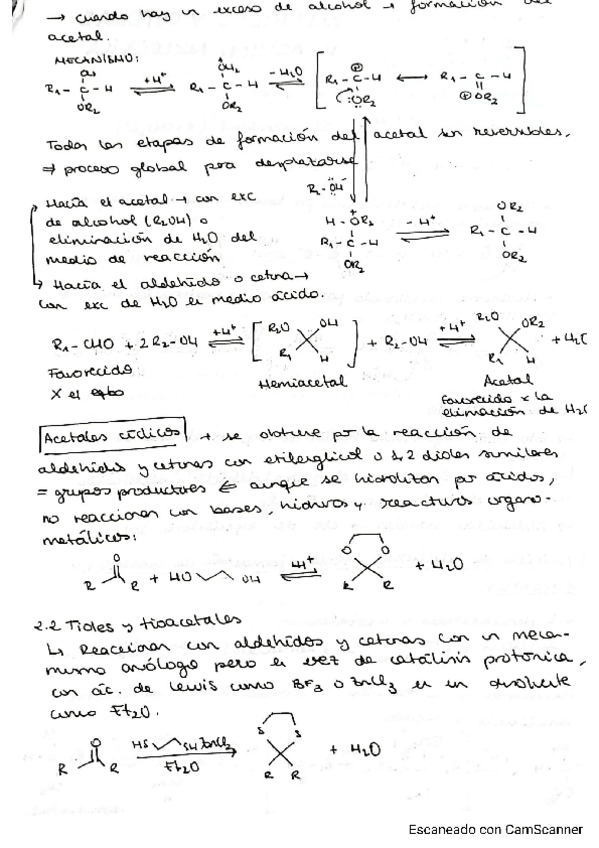 → cuando hay un exceso de alcohol → formación del
acetal.
MECANISMO:
OH
R₁ - C - H
OR₂
+H⁺
⁺OH₂
R₁ - C - H
OR₂
- H₂O
R₁ - C - H
:OR₂
R₁ - C - H
⊕OR₂
Todas las etapas de formación del acetal son reversibles.
⇒ proceso global para desplazarse
R₂-ÖH
Hacia el acetal → con exc
de alcohol (R₂OH) o
eliminación de H₂O del
medio de reacción
H - OR₂
R₁ - C - H
OR₂
- H⁺
OR₂
R₁ - C - H
OR₂
Hacia el aldehído o cetona →
con exc de H₂O en medio ácido.
R₁ - CHO + 2 R₂-OH
+H⁺
R₂O OH
R₁ H
+ R₂-OH
+H⁺
R₂O OR₂
R₁ H
+ H₂O
Favorecido
Hemiacetal
Acetal
Favorecido x la
elimación de H₂O
Acetales cíclicos → se obtiene por la reacción de
aldehídos y cetonas con etilenglicol o 1,2 dioles similares
= grupos protectores ⇐ aunque se hidrolizan por ácidos,
no reaccionan con bases, hidruros y reactivos organo-
metálicos:
O
R R + HO OH
+H⁺
O O
R R
+ H₂O
2.2 Tioles y tioacetales
↳ Reaccionan con aldehídos y cetonas con un meca-
nismo análogo pero en vez de catálisis protónica,
con ác. de Lewis como BF₃ o ZnCl₂ en un disolvente
como Et₂O.
O
R R
HS SH ZnCl₂
Et₂O
S S
R R
+ H₂O
Escaneado con CamScanner